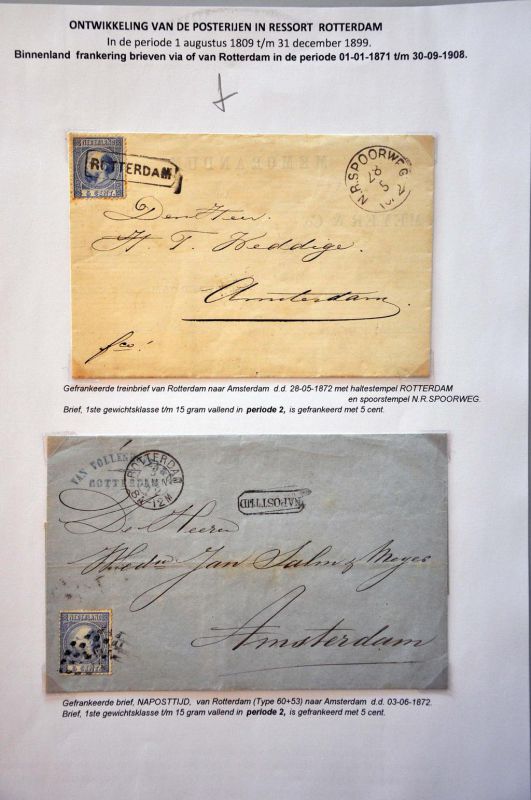 ONTWIKKELING VAN DE POSTERIJEN IN RESSORT ROTTERDAM
In de periode 1 augustus 1809 t/m 31 december 1899.
Binnenland frankering brieven via of van Rotterdam in de periode 01-01-1871 t/m 30-09-1908.
NEDERLAND
5 CENT
ROTTERDAM
MEMORANDUM
N.R.SPOORWEG
28
5
Den Heer
H. T. Keddige.
Amsterdam.
fco!
Gefrankeerde treinbrief van Rotterdam naar Amsterdam d.d. 28-05-1872 met haltestempel ROTTERDAM
en spoorstempel N.R.SPOORWEG.
Brief, 1ste gewichtsklasse t/m 15 gram vallend in periode 2, is gefrankeerd met 5 cent.
ROTTERDAM
8N-12M
ROTTERDAM
NAPOSTTIJD
De Heeren
Wedn Jan Salm & Meyer
Amsterdam
NEDERLAND
5 CENT
Gefrankeerde brief, NAPOSTTIJD, van Rotterdam (Type 60+53) naar Amsterdam d.d. 03-06-1872.
Brief, 1ste gewichtsklasse t/m 15 gram vallend in periode 2, is gefrankeerd met 5 cent.